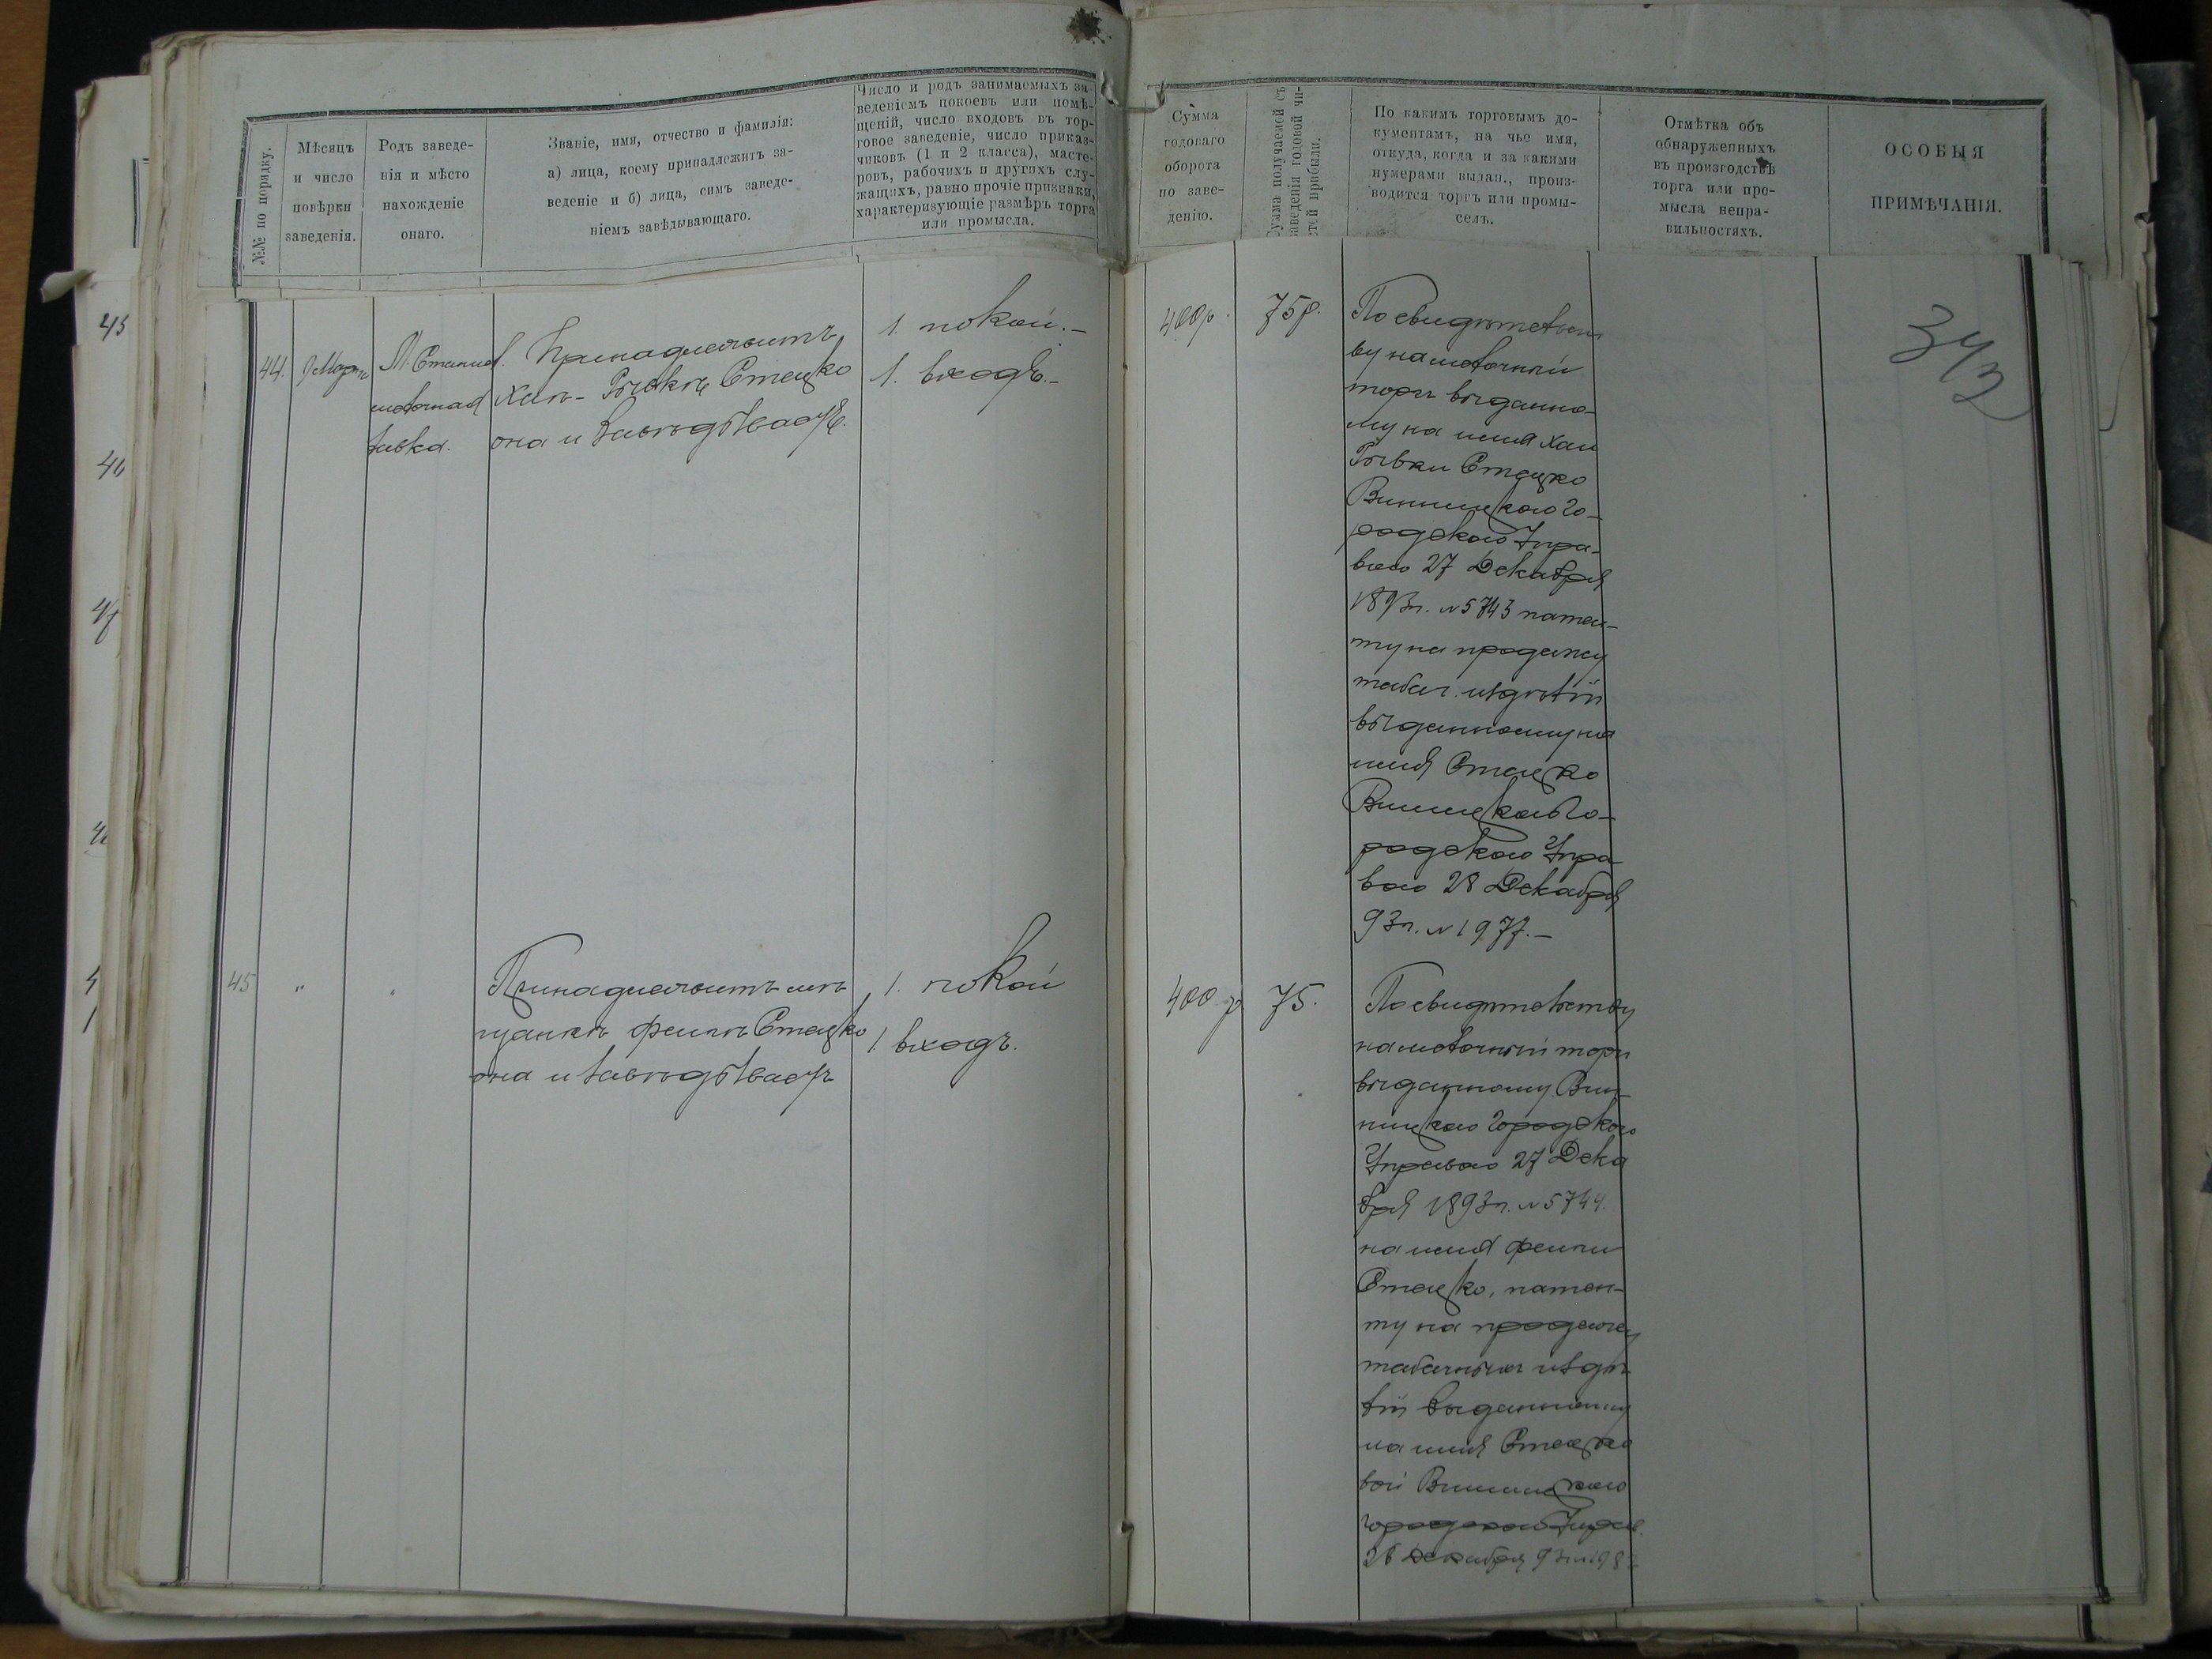 №№ по порядку.
Мѣсяцъ
и число
повѣрки
заведенія.
Родъ заведе-
нія и мѣсто
нахожденіе
онаго.
Званіе, имя, отчество и фамилія:
а) лица, коему принадлежитъ за-
веденіе и б) лица, симъ заведе-
ніемъ завѣдывающаго.
Число и родъ занимаемыхъ за-
веденіемъ покоевъ или помѣ-
щеній, число входовъ въ тор-
говое заведеніе, число приказ-
чиковъ (1 и 2 класса), масте-
ровъ, рабочихъ и другихъ слу-
жащихъ, равно прочіе признаки,
характеризующіе размѣръ торга
или промысла.
Сумма
годоваго
оборота
по заве-
денію.
Сумма получаемой съ
заведенія годовой чи-
стой прибыли.
По какимъ торговымъ до-
кументамъ, на чье имя,
откуда, когда и за какими
нумерами выдан., произ-
водится торгъ или промы-
селъ.
Отмѣтка объ
обнаруженныхъ
въ производствѣ
торга или про-
мысла непра-
вильностяхъ.
ОСОБЫЯ
ПРИМѢЧАНІЯ.
343
44.
9 Марта
мелочная
лавка.
Принадлежитъ
Хаи-Рывкѣ Стецко
она и завѣдываетъ.
1. покой.-
1. входъ.-
400р.
75р.
По свидѣтельст
ву на мелочный
торгъ выданно-
му на имя Хаи
Рывки Стецко
Винницкою Го-
родскою Упра-
вою 27 Декабря
1893г. № 5743 патен-
ту на продажу
табач. издѣлій
выданному на
имя Стецко
Винницкою Го-
родскою Упра
вою 28 Декабря
93г. № 1977.-
45
"
"
Принадлежитъ мѣ
щанкѣ Фейгѣ Стецко
она и завѣдываетъ
1. покой
1 входъ.
400 р
75.
По свидѣтельству
на мелочный торгъ
выданному Вин-
ницкою Городскою
Управою 27 Дека
бря 1893г. № 5744.
на имя Фейги
Стецко, патен-
ту на продажу
табачныхъ издѣ
лій выданному
на имя Стецко
вой Винницкою
Городскою Управ.
28 Декабря 93г
45